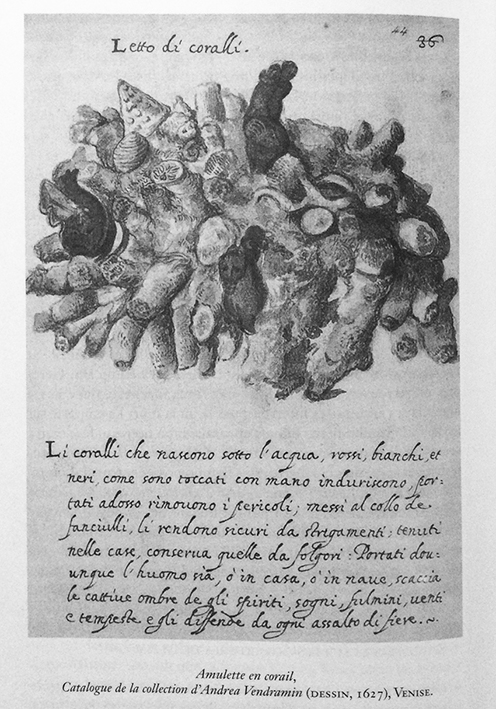 44
36
Letto di coralli.
Li coralli che nascono sotto l'acqua, rossi, bianchi, et
neri, come sono toccati con mano induriscono, por:
tati adosso rimouono i pericoli; messi al collo de
fanciulli, li rendono sicuri da strigamenti; tenuti
nelle case, conserua quelle da folgori: Portati dou:
unque l'huomo sia, ò in casa, ò in naue, scaccia
le cattiue ombre de gli spiriti, sogni, fulmini, uenti
e tempeste. e gli diffende da ogni assalto di fiere. ~.
Amulette en corail,
Catalogue de la collection d'Andrea Vendramin (DESSIN, 1627), VENISE.